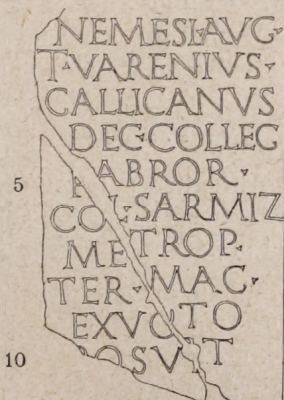 NEMESI·AVG·
T·VARENIVS·
GALLICANVS
DEC·COLLEG
FABROR·
5
COL·SARMIZ
METROP·
TER·MAC·
EXVOTO
10
POSVIT